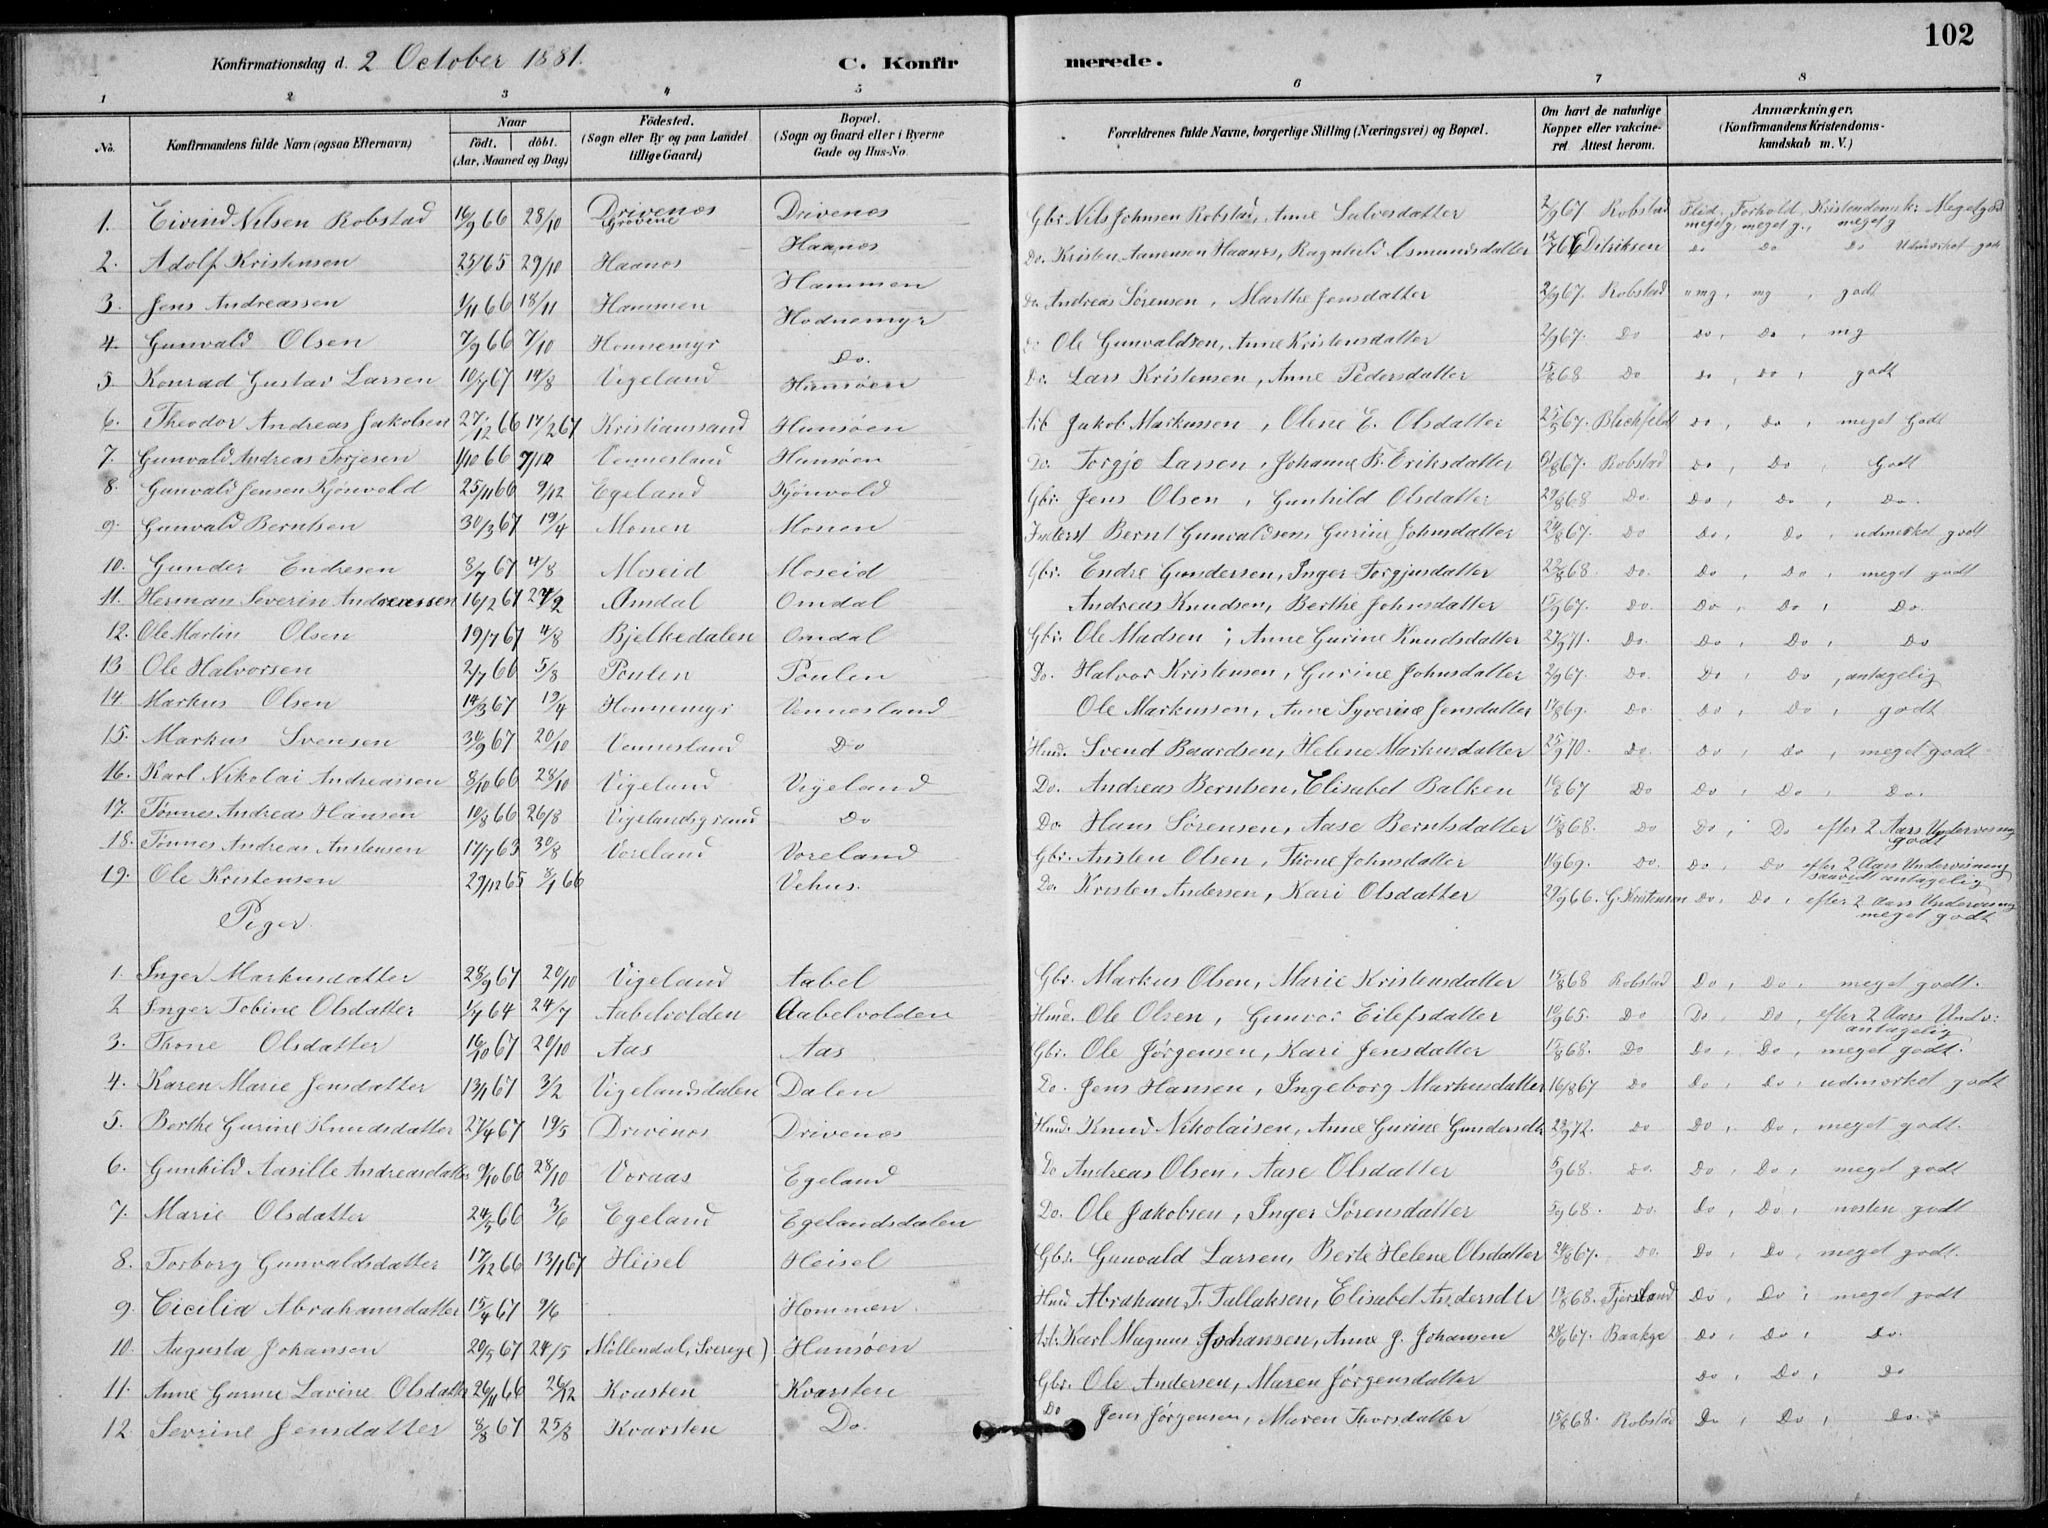 102
Konfirmationsdag d. 2 October 1881. C. Konfirmerede.
1 2 3 4 5 6 7 8
No. Konfirmandens fulde Navn (ogsaa Efternavn) Naar født. døbt. (Aar, Maaned og Dag) Fødested. (Sogn eller By og paa Landet tillige Gaard) Bopæl. (Sogn og Gaard eller i Byerne Gade og Hus-No. Forældrenes fulde Navne, borgerlige Stilling (Næringsvei) og Bopæl. Om havt de naturlige Kopper eller vakcineret Attest herom. Anmærkninger. (Konfirmandens Kristendomskundskab m. V.)
1. Eivind Nilsen Robstad 16/9 66 28/10 Drivenes Drivenes Gbr. Nils Johnsen Robstad, Anne Salvesdatter 2/9 67 Robstad Flid, Forhold, Kristendomsk: Megetgod meget g. meget g., meget g
2. Adolf Kristensen 25/65 29/10 Haanes Haanes Do. Kristen Aanensen Haanes, Ragnhild Asmundsdatter Do Do Do Udmærket godt
3. Jens Andreassen 1/11 66 18/11 Hammen Hammen Do. Andreas Sørensen, Marthe Jensdatter 2/9 67. Robstad mg, mg, godt
4. Gunvald Olsen 7/9 66 7/10 Honnemyr Hodnemyr Do Ole Gunvaldsen, Anne Kristensdatter 2/9 67. Do Do, Do, mg
5. Konrad Gustav Larsen 10/7 67 14/8 Vigeland Do. Hunsøen Do. Lars Kristensen, Anne Pedersdatter 15/8 68 Do Do, Do, godt
6. Theodor Andreas Jakobsen 27/12 66 17/2 67 Kristianssand Hunsøen Arb Jakob Markussen, Olene E. Olsdatter 25/5 67. Blechfeldt Do, Do, meget Godt
7. Gunvald Andreas Torjesen 1/10 66 Vennesland Hunsøen Do. Torgje Larsen, Johanne B. Eriksdatter 67. Robstad Do, Do, Godt
8. Gunvald Jensen Kjønvold 25/11 66 9/12 Egeland Kjønvold Gbr. Jens Olsen, Gunhild Olsdatter 29/8 68 Do. Do, Do, Do.
9. Gunvald Berntsen 30/3 67 19/4 Monen Monen Inderst Bernt Gunvaldsen, Gurine Johnsdatter 24/8 67. Do Do, Do, udmerket godt
10. Gunder Endresen 8/7 67 4/8 Moseid Moseid Gbr. Endre Gundersen, Inger Torgjusdatter 23/8 68. Do. Do, Do, meget godt
11. Herman Severin Andreassen 16/2 67 Omdal Omdal Andreas Knudsen, Berthe Johnsdatter 15/9 67. Do. Do, Do, Do.
12. Ole Martin Olsen 19/7 67 4/8 Bjelkedalen Omdal Gbr. Ole Madsen, Anne Gurine Knudsdatter 27/9 71. Do. Do, Do, Do
13 Ole Halvorsen 2/7 66 5/8 Poulen Poulen Do. Halvor Kristensen, Gurine Johnsdatter 2/9 67. Do. Do, Do, antagelig
14 Markus Olsen 14/3 67 19/4 Honnemyr Vennesland Ole Markussen, Anne Syverine Jensdatter 17/8 69. Do. Do, Do, godt
15. Markus Svensen 30/9 67 20/10 Vennesland Do Hmd. Svend Baardsen, Helene Markusdatter 25/9 70. Do. Do, Do, meget godt
16. Karl Nikolai Andreassen 8/10 66 28/10 Vigeland Vigeland Do. Andreas Berntsen, Elisabet Balken 16/8 67 Do Do, Do, Do.
17. Tønnes Andreas Hansen 10/8 66 26/8 Vigelandsgrund Do Do. Hans Sørensen, Aase Berntsdatter 15/8 68. Do Do, Do efter 2 Aars Undervisning godt
18. Tønnes Andreas Anstensen 17/7 63 30/8 Voreland Voreland Gbr. Ansten Olsen, Thone Johnsdatter 69. Do. Do, Do efter 2 Aars Undervisning saavidt antagelig
19. Ole Kristensen 29/12 65 8/1 66 Vehus. Do. Kristen Andersen, Kari Olsdatter 29/9 66. G. Kristensen Do, Do, efter 2 Aars Undervisning meget godt
Piger.
1. Inger Markusdatter 28/9 67 20/10 Vigeland Aabel Gbr. Markus Olsen, Marie Kristensdatter 15/8 68 Robstad Do, Do, meget godt.
2 Inger Tobine Olsdatter 1/7 64 24/7 Aabelvolden Aabelvolden Hmd. Ole Olsen, Gunvor Eilefsdatter 65. Do Do, Do, efter 2 Aars Undv: antagelig
3. Thone Olsdatter 16/10 67 20/10 Aas Aas Gbr. Ole Jørgensen, Kari Jensdatter 15/8 68. Do Do, Do, meget godt.
4. Karen Marie Jensdatter 13/1 67 3/2 Vigelandsdalen Dalen Do. Jens Hansen, Ingeborg Markusdatter 16/8 67 Do Do, Do, udmærket godt
5. Berthe Gurine Knudsdatter 27/4 67 19/5 Drivenes Drivenes Hmd. Knud Nikolaisen, Anne Gurine Gundersdtr 23/9 72. Do Do, Do, meget godt.
6. Gunhild Aasille Andreasdatter 9/10 66 28/10 Voraas Egeland Do Andreas Olsen, Aase Olsdatter 5/9 68. Do. Do, Do, meget godt
7. Marie Olsdatter 24/5 66 3/6 Egeland Egelandsdalen Do. Ole Jakobsen, Inger Sørensdatter 5/9 68. Do. Do, Do, næsten godt
8. Torborg Gunvaldsdatter 17/12 66 13/1 67 Heisel Heisel Gbr. Gunvald Larsen, Berte Helene Olsdatter 24/8 67. Do. Do, Do, meget godt.
9. Cicilia Abrahamsdatter 15/4 67 9/6 Hommen Hmd Abraham T. Tallaksen, Elisabet Andersdtr 13/8 68. Fjersland Do, Do, meget godt
10. Augusta Johansen 20/5 67 24/5 Møllendal, Sverige) Hunsøen Arb. Karl Magnus Johansen, Anne J. Johansen 28/6 67. Baakge Do, Do, Do.
11. Anne Gurine Lavine Olsdatter 26/11 66 26/12 Kvarsten Kvarsten Gbr. Ole Andersen, Maren Jørgensdatter Do, Do, Do
12. Sevrine Jensdatter 8/8 67 25/8 Kvarsten Do. Do Jens Jørgensen, Maren Thorsdatter 15/8 68. Robstad Do, Do, Do.